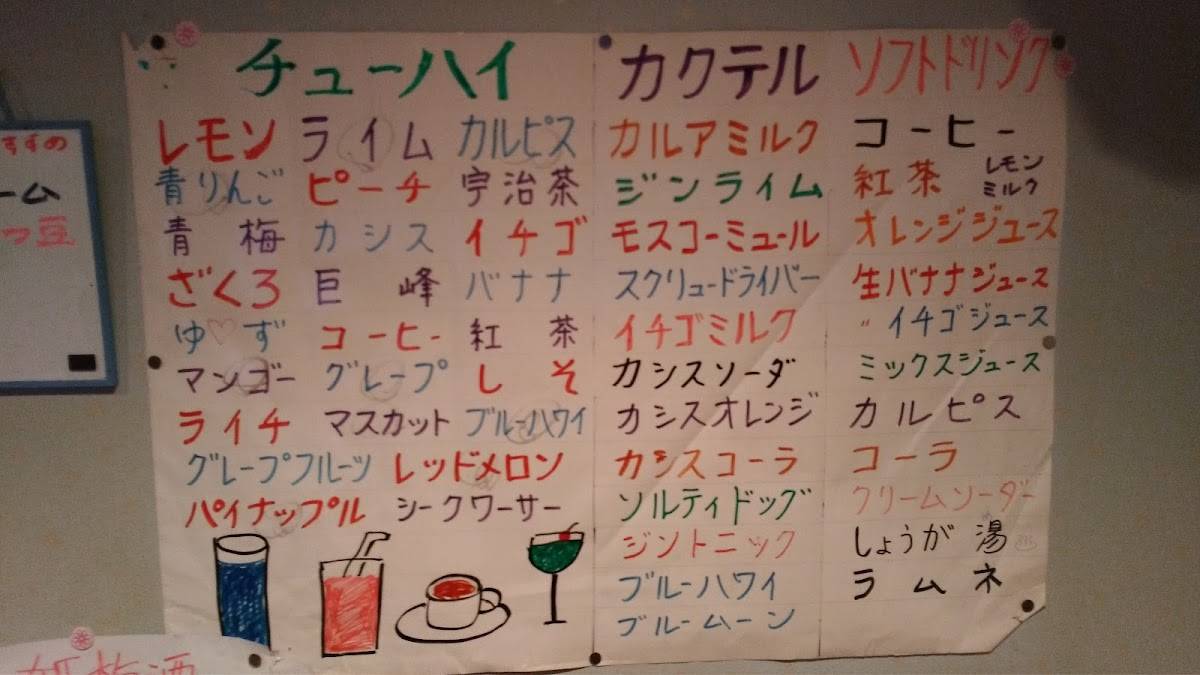 チューハイ
レモン ライム カルピス
青りんご ピーチ 宇治茶
青梅 カシス イチゴ
ざくろ 巨峰 バナナ
ゆ♡ず コーヒー 紅茶
マンゴー グレープ しそ
ライチ マスカット ブルーハワイ
グレープフルーツ レッドメロン
パイナップル シークワーサー
カクテル
カルアミルク
ジンライム
モスコーミュール
スクリュードライバー
イチゴミルク
カシスソーダ
カシスオレンジ
カシスコーラ
ソルティドッグ
ジントニック
ブルーハワイ
ブルームーン
ソフトドリンク
コーヒー
紅茶 レモン
ミルク
オレンジジュース
生バナナジュース
〃イチゴジュース
ミックスジュース
カルピス
コーラ
クリームソーダー
しょうが湯
ラムネ
すすの
ーム
っ豆
梅酒